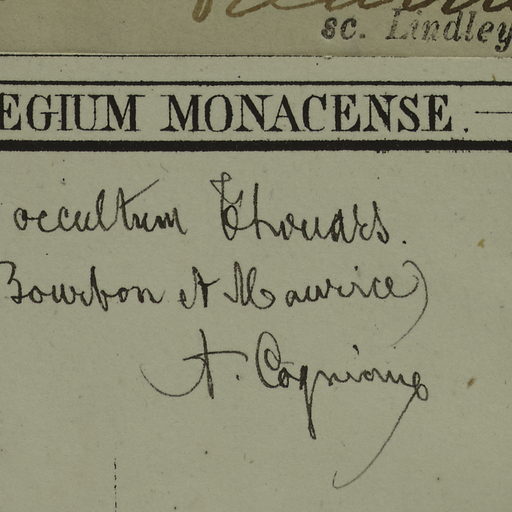 sc. Lindley
EGIUM MONACENSE.
occultum Thouars.
Bourbon et Maurice)
A. Cogniaux